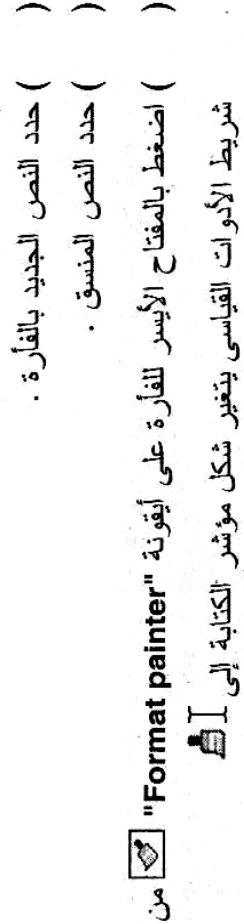 ( ) حدد النص الجديد بالفأرة .
( ) حدد النص المنسق .
( ) اضغط بالمفتاح الأيسر للفأرة على أيقونة "Format painter" من
شريط الأدوات القياسى يتغير شكل مؤشر الكتابة إلى